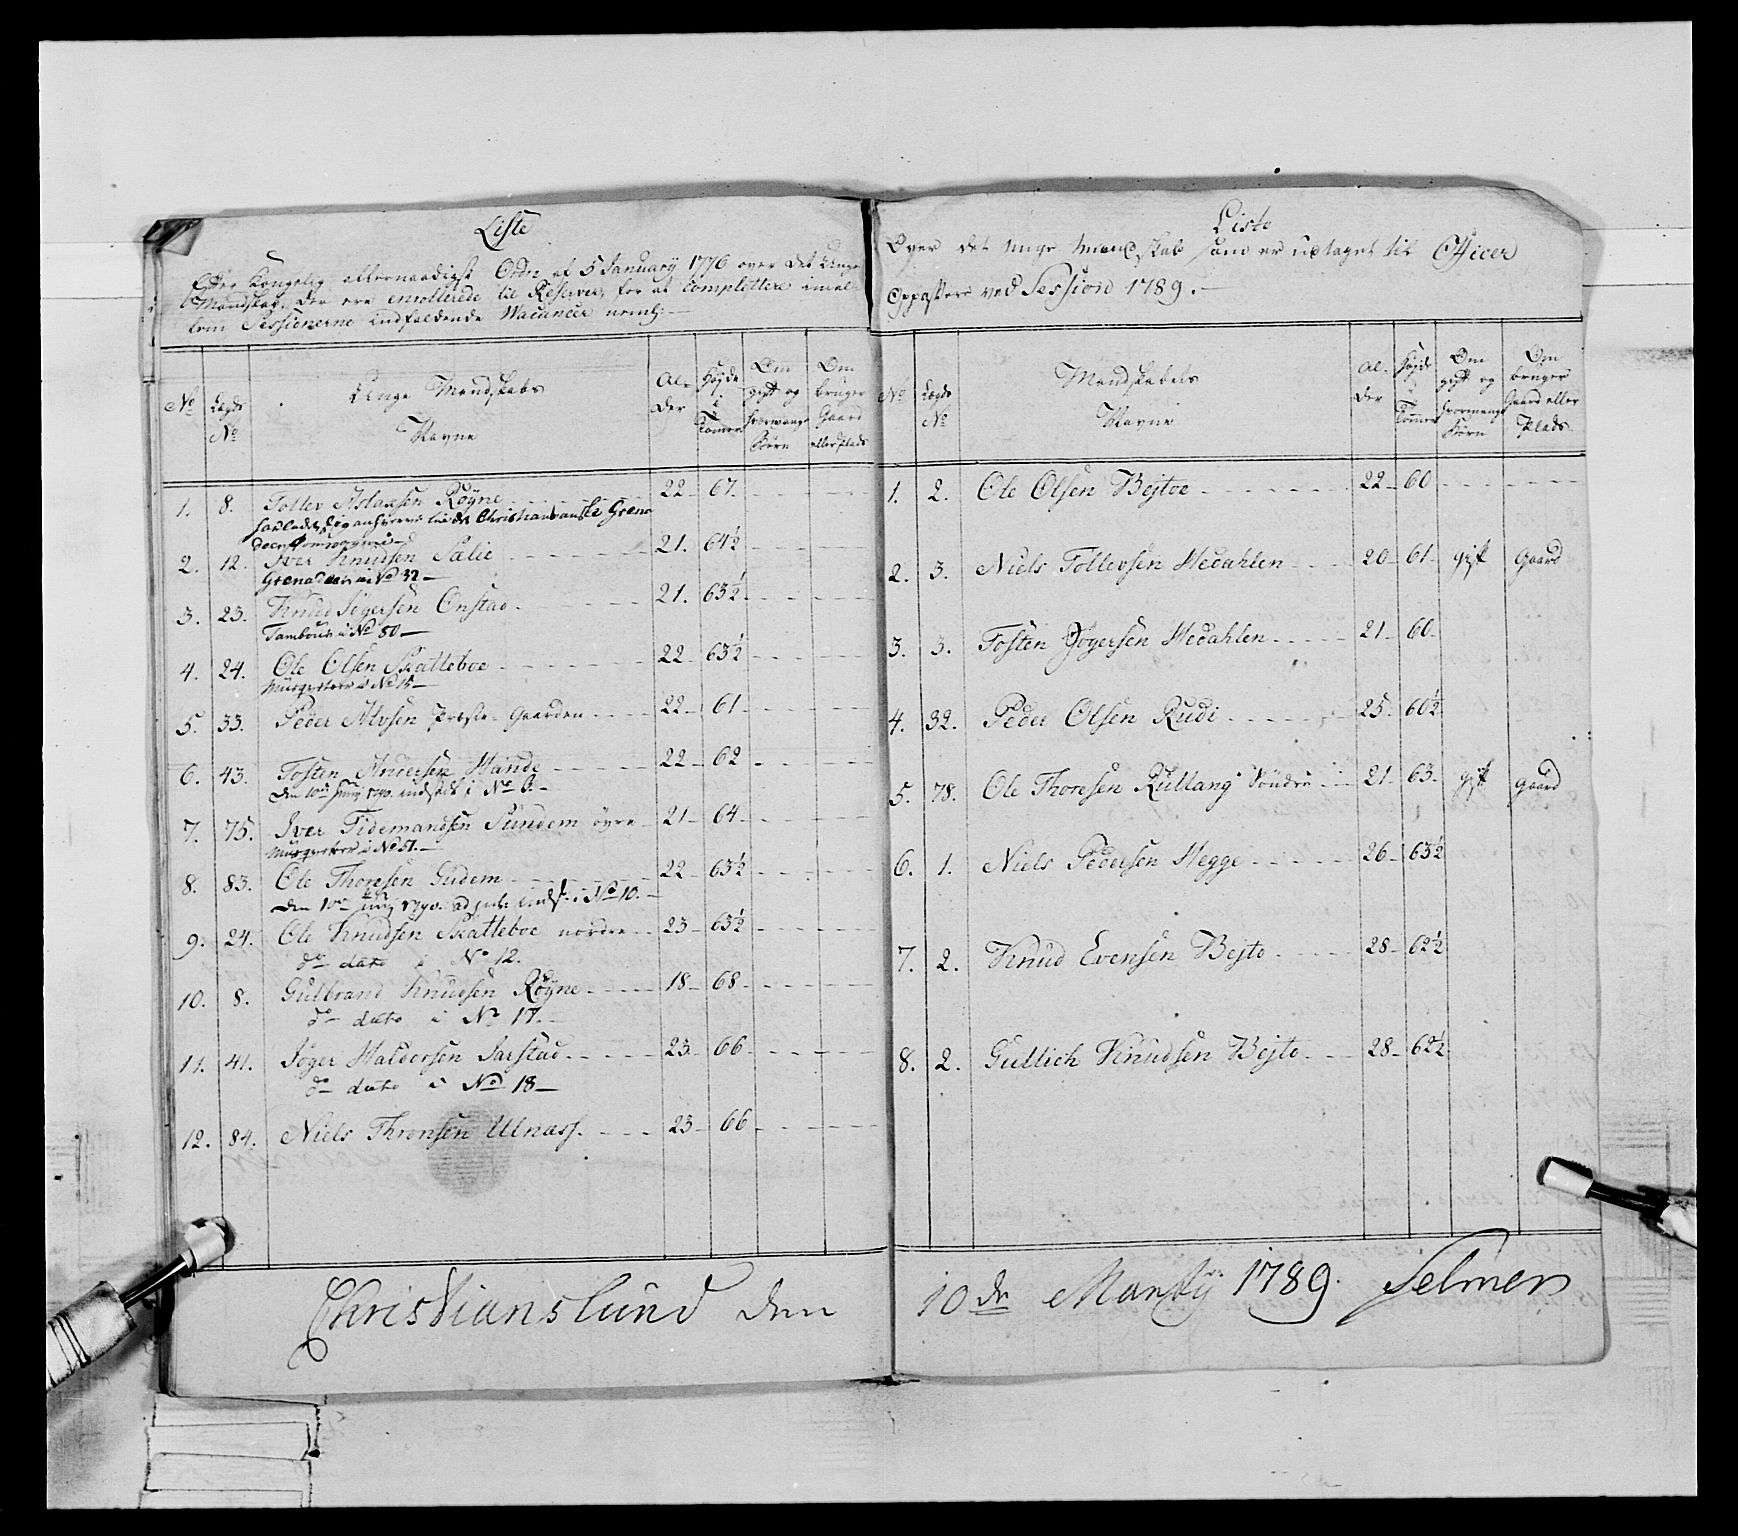 Liste
Efter Kongelig allernaadigst Ordn. af 5 January 1776 over det Unge
Mandskab, der ere enrollerede til Reserver, for at complettere imel-
lem Sessionerne indfaldende Vacancer nemlig:—
No
Lægds No
Unge Mandskabs Navne
Al-der
Høyde i Tommer
Om gift og hvormange Børn
Om bruger Gaard eller Plads
1. 8. Tollev Aslaksen Røyne 22 67.
det Christiansanske Grena
2. 12. Iver Knudsen Sælie 21. 64½
Grenadeer No 32
3. 23. Knud Jøgersen Onstad 21. 63½
Tambour i No 80
4. 24. Ole Olsen Skatteboe 22 63½
i No 15
5. 33. Peder Alvsen Præste-Gaarden 22 61
6. 43. Tosten Andersen Hande 22 62
den 10de Junj 1790. indsadt i No 6.
7. 75. Iver Tidemandsen Sundem øvre 21 64
i No 51.
8. 83. Ole Thoresen Gudem 22 63½
den 10de Junj 1790. i No 10.
9. 24. Ole Knudsen Skatteboe nordre 23 63½
do dato i No 12.
10. 8. Gulbrand Knudsen Røyne 18 68
do dato i No 17.
11. 41. Jøger Haldorsen Jarstad 23 66
do dato i No 18
12. 84. Niels Thronsen Ulnæss. 23 66
Liste
Over det unge Mandskab som er udtaget til Officer
Oppassere ved Session 1789.
No
Lægds No
Mandskabets Navne
Al-der
Høyde i Tommer
Om gift og hvormange Børn
Om bruger Gaard eller Plads
1. 2. Ole Olsen Bejtoe 22 60
2. 3. Niels Tollevsen Hedahlen 20 61 gift Gaard
3. 3. Tosten Jøgersen Hedahlen 21 60
4. 32. Peder Olsen Rudi 25 60½
5. 78. Ole Thoresen Rullang Søndre 21 63 gift gaard
6. 1. Niels Pedersen Hegge 26 63½
7. 2. Knud Evensen Bejto 28 62½
8. 2. Gullich Knudsen Bejto 28 62½
Christianslund den 10de Martij 1789. Selmer